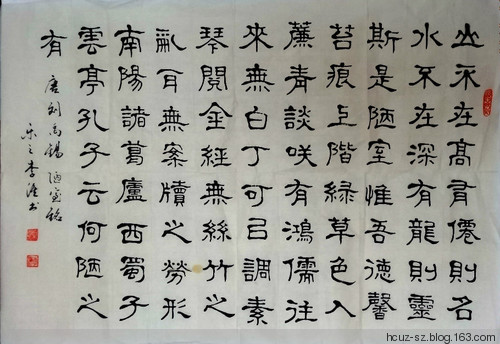 山不在高有僊則名
水不在深有龍則靈
斯是陋室惟吾德馨
苔痕上階緑草色入
簾青談咲有鴻儒往
來無白丁可㠯調素
琴閲金經無絲竹之
亂耳無案牘之勞形
南陽諸葛廬西蜀子
雲亭孔子云何陋之
有
唐刘禹锡陋室铭
李书
hcuz-sz.blog.163.com